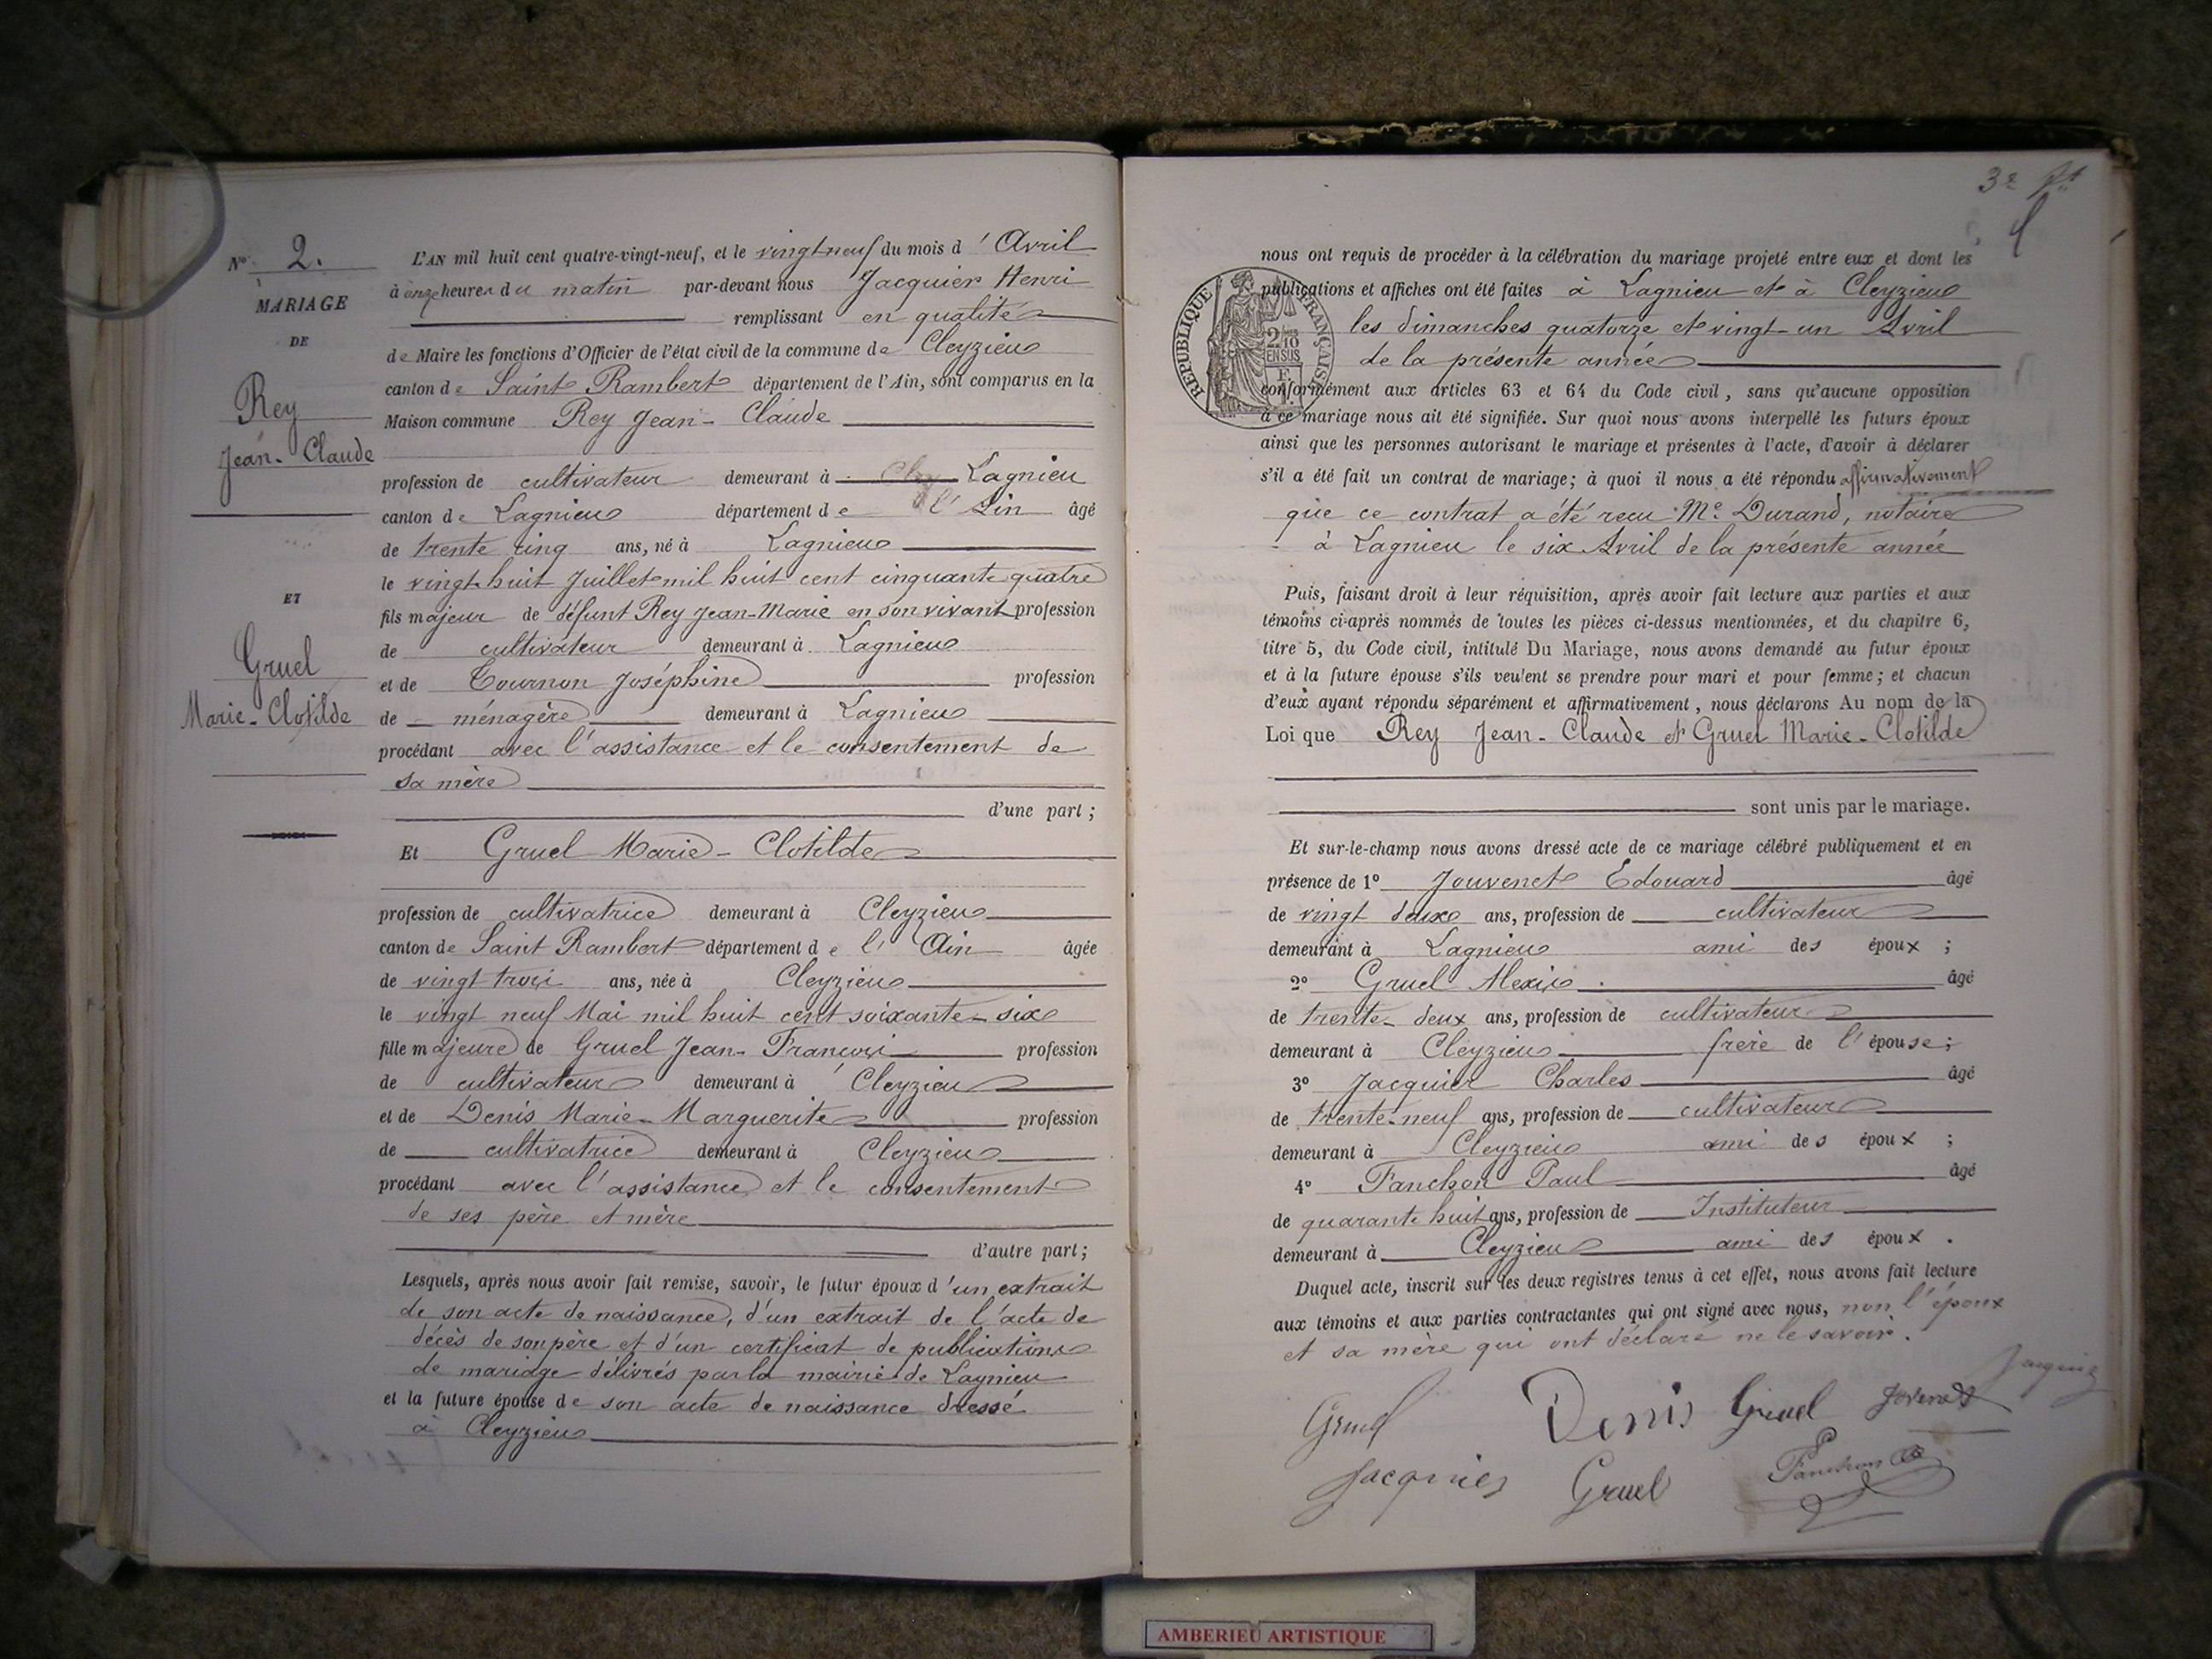 N° 2.
MARIAGE
DE
Rey
Jean-Claude
ET
Gruel
Marie-Clotilde
L'AN mil huit cent quatre-vingt-neuf, et le vingt neuf du mois d'Avril
à onze heures du matin par-devant nous Jacquier Henri
remplissant en qualité
de Maire les fonctions d'Officier de l'état civil de la commune de Cleyzieu
canton de Saint Rambert département de l'Ain, sont comparus en la
Maison commune Rey Jean-Claude
profession de cultivateur demeurant à Cley Lagnieu
canton de Lagnieu département de l'Ain âgé
de trente cinq ans, né à Lagnieu
le vingt-huit Juillet mil huit cent cinquante quatre
fils majeur de défunt Rey Jean-Marie en son vivant profession
de cultivateur demeurant à Lagnieu
et de Tournon Joséphine profession
de ménagère demeurant à Lagnieu
procédant avec l'assistance et le consentement de
sa mère
d'une part;
Et Gruel Marie-Clotilde
profession de cultivatrice demeurant à Cleyzieu
canton de Saint Rambert département de l'Ain âgée
de vingt trois ans, née à Cleyzieu
le vingt neuf Mai mil huit cent soixante-six
fille majeure de Gruel Jean-François profession
de cultivateur demeurant à Cleyzieu
et de Denis Marie-Marguerite profession
de cultivatrice demeurant à Cleyzieu
procédant avec l'assistance et le consentement
de ses père et mère
d'autre part;
Lesquels, après nous avoir fait remise, savoir, le futur époux d'un extrait
de son acte de naissance, d'un extrait de l'acte de
décès de son père et d'un certificat de publications
de mariage délivrés par la mairie de Lagnieu
et la future épouse de son acte de naissance dressé
à Cleyzieu
32
nous ont requis de procéder à la célébration du mariage projeté entre eux et dont les
publications et affiches ont été faites à Lagnieu et à Cleyzieu
les dimanches quatorze et vingt-un Avril
de la présente année
RÉPUBLIQUE FRANÇAISE
2
10
EN SUS
conformément aux articles 63 et 64 du Code civil, sans qu'aucune opposition
à ce mariage nous ait été signifiée. Sur quoi nous avons interpellé les futurs époux
ainsi que les personnes autorisant le mariage et présentes à l'acte, d'avoir à déclarer
s'il a été fait un contrat de mariage; à quoi il nous a été répondu affirmativement
que ce contrat a été recu Me Durand, notaire
à Lagnieu le six Avril de la présente année
Puis, faisant droit à leur réquisition, après avoir fait lecture aux parties et aux
témoins ci-après nommés de toutes les pièces ci-dessus mentionnées, et du chapitre 6,
titre 5, du Code civil, intitulé Du Mariage, nous avons demandé au futur époux
et à la future épouse s'ils veulent se prendre pour mari et pour femme; et chacun
d'eux ayant répondu séparément et affirmativement, nous déclarons Au nom de la
Loi que Rey Jean-Claude et Gruel Marie-Clotilde
sont unis par le mariage.
Et sur-le-champ nous avons dressé acte de ce mariage célébré publiquement et en
présence de 1° Jouvenet Edouard âgé
de vingt deux ans, profession de cultivateur
demeurant à Lagnieu ami des époux;
2° Gruel Alexis âgé
de trente-deux ans, profession de cultivateur
demeurant à Cleyzieu frère de l'épouse;
3° Jacquier Charles âgé
de trente-neuf ans, profession de cultivateur
demeurant à Cleyzieu ami des époux;
4° Fanchon Paul âgé
de quarante huit ans, profession de Instituteur
demeurant à Cleyzieu ami des époux.
Duquel acte, inscrit sur les deux registres tenus à cet effet, nous avons fait lecture
aux témoins et aux parties contractantes qui ont signé avec nous, non l'époux
et sa mère qui ont déclaré ne le savoir.
Gruel Denis Gruel Jovenet Jacquier
Jacquier Gruel Fanchon
AMBERIEU ARTISTIQUE